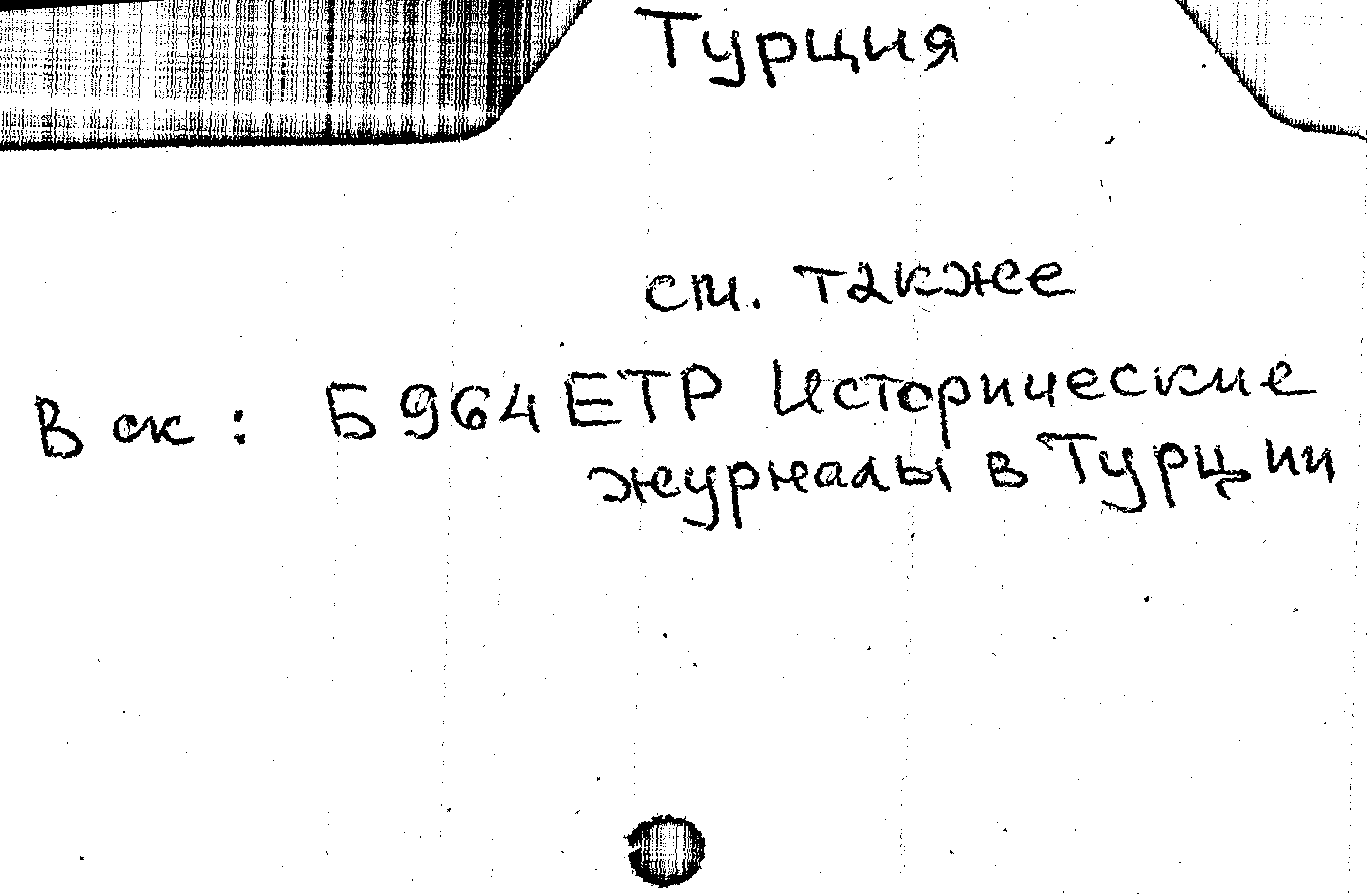 Турция
см. также
В ск : Б964ЕТР Исторические
журналы в Турции